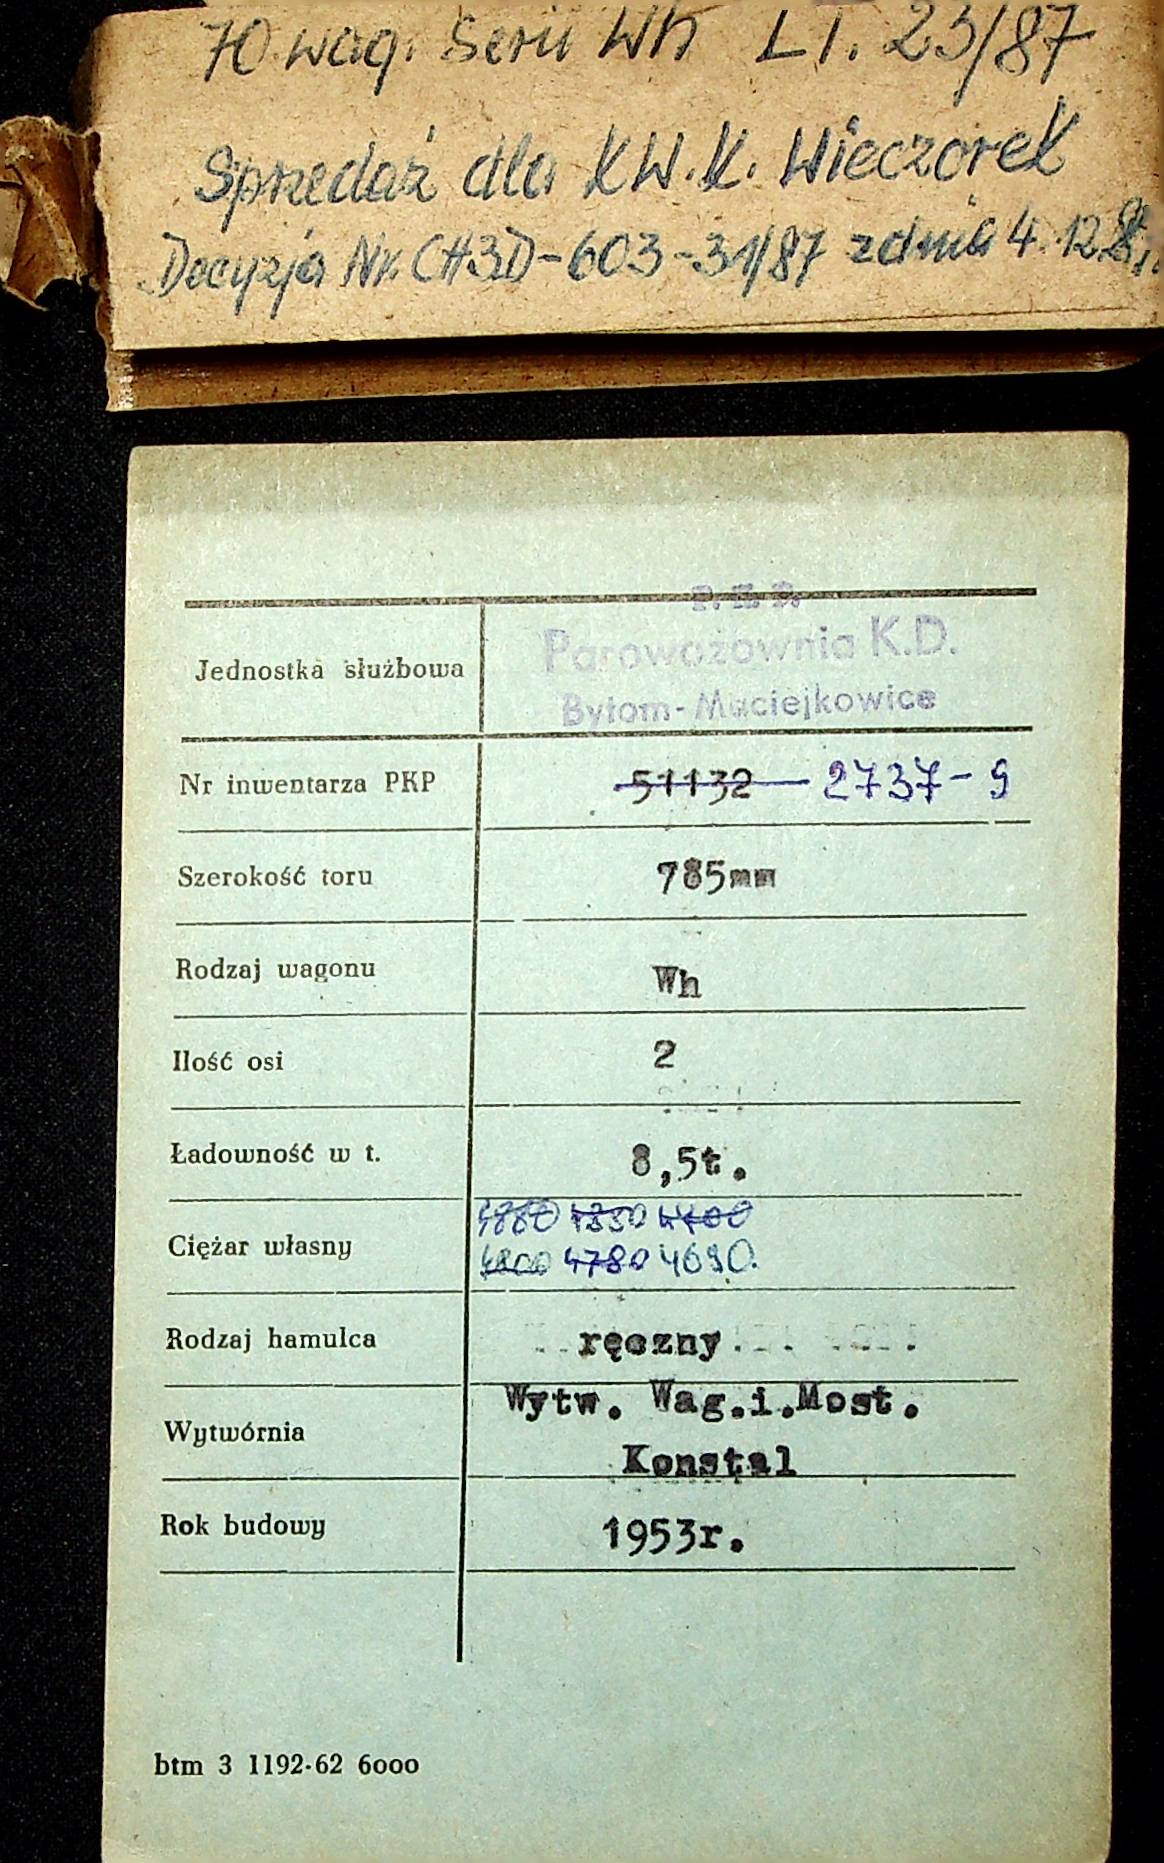 70 wag. Serii Wh LT. 23/87
Sprzedaż dla KW.K. Wieczorek
Decyzja Nr. CH3D-603-31/87 z dnia 4.12.87
P. K. P.
Parowozownia K.D.
Bytom-Maciejkowice
Jednostka służbowa
Nr inwentarza PKP 51132 2737-9
Szerokość toru 785mm
Rodzaj wagonu Wh
Ilość osi 2
Ładowność w t. 8,5t.
4880 4400
Ciężar własny 4800 4780 4690.
Rodzaj hamulca ręczny
Wytw. Wag.i.Most.
Wytwórnia Konstal
Rok budowy 1953r.
btm 3 1192-62 6000